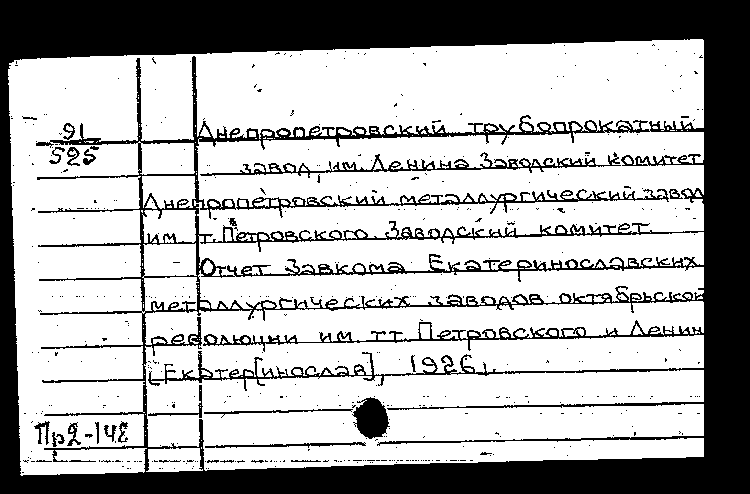 91
525
Днепропетровский трубопрокатный
завод им. Ленина Заводский комитет
Днепропетровский металлургический завод
им. т. Петровского. Заводский комитет.
Отчет Завкома Екатеринославских
металлургических заводов октябрьской
революции им. тт. Петровского и Ленин
[Екатер[инослав], 1926].
Пр2-142